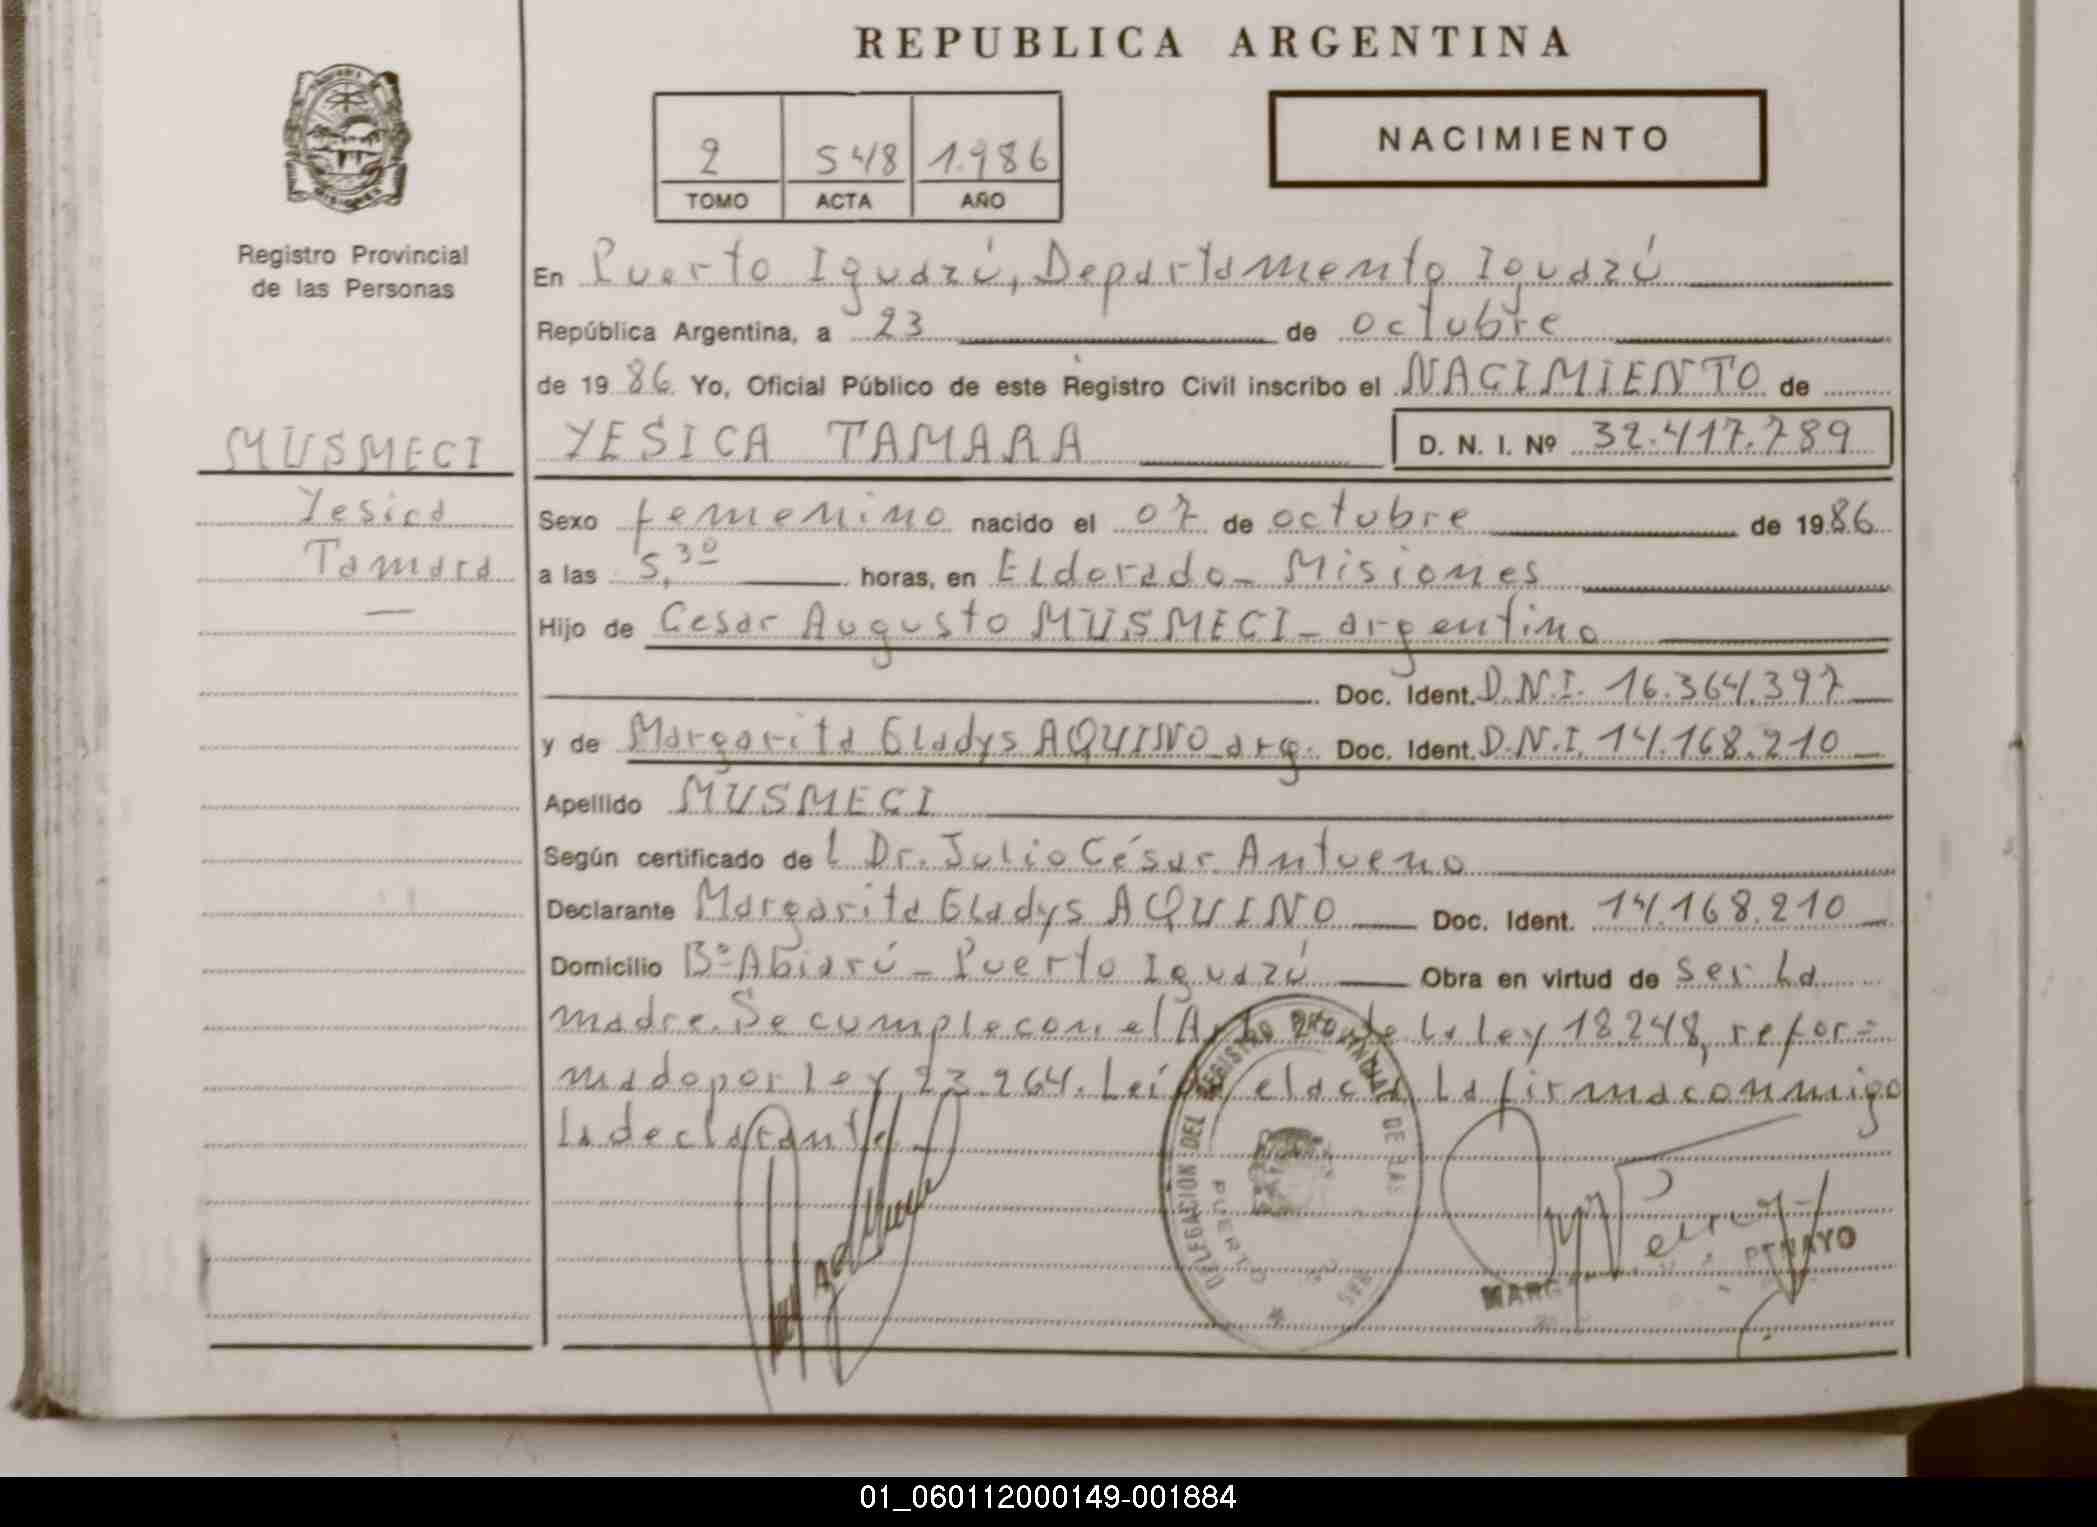 REPUBLICA ARGENTINA
NACIMIENTO
2 548 1.986
TOMO ACTA AÑO
Registro Provincial
de las Personas
En Puerto Iguazú, Departamento Iguazú
República Argentina, a 23 de octubre
de 1986 Yo, Oficial Público de este Registro Civil inscribo el NACIMIENTO de
MUSMECI
YESICA TAMARA D. N. I. Nº 32.417.789
Yesica
Tamara
Sexo femenino nacido el 07 de octubre de 1986
a las 5,30 horas, en Eldorado - Misiones
Hijo de Cesar Augusto MUSMECI - argentino
Doc. Ident. D.N.I. 16.364.397
y de Margarita Gladys AQUINO arg. Doc. Ident. D.N.I. 14.168.210
Apellido MUSMECI
Según certificado de l Dr. Julio César Antueno
Declarante Margarita Gladys AQUINO Doc. Ident. 14.168.210
Domicilio Bº Abiarú - Puerto Iguazú Obra en virtud de ser la
madre. Se cumple con el Art. de la ley 18.248, refor=
mado por ley 23.264. Leída el acta la firma conmigo
la declarante.
DELEGACION DEL REGISTRO PROVINCIAL DE LAS
PUERTO
MARG PENAYO
01_060112000149-001884